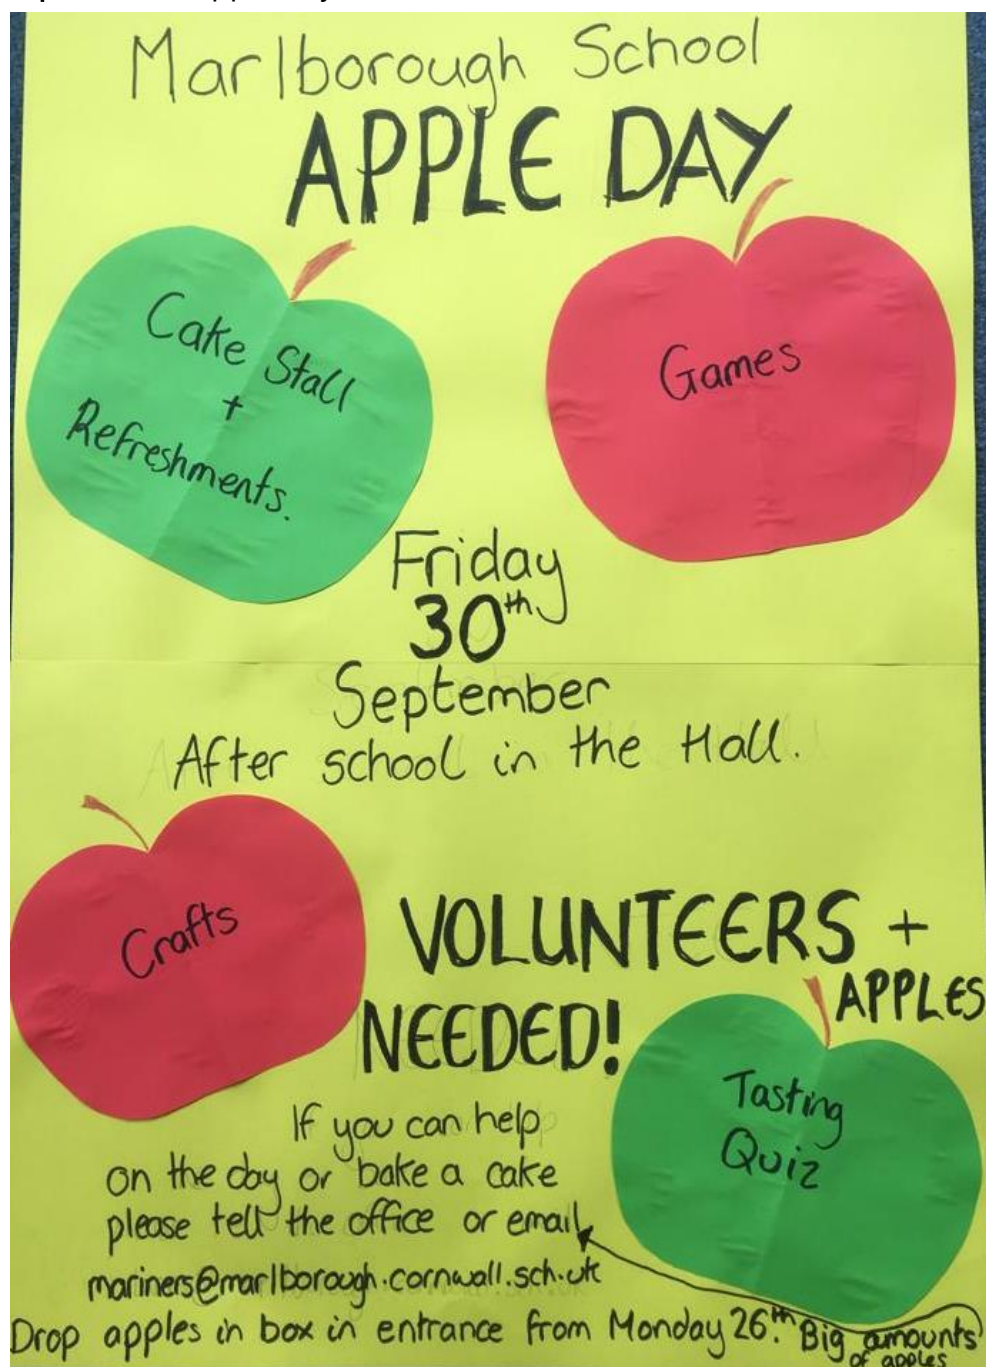 Marlborough School
APPLE DAY
Cake Stall
+
Refreshments.
Games
Friday
30th
September
After school in the Hall.
Crafts
VOLUNTEERS +
APPLES
NEEDED!
Tasting
Quiz
If you can help
on the day or bake a cake
please tell the office or email
mariners@marlborough.cornwall.sch.uk
Drop apples in box in entrance from Monday 26th. Big amounts
of apples